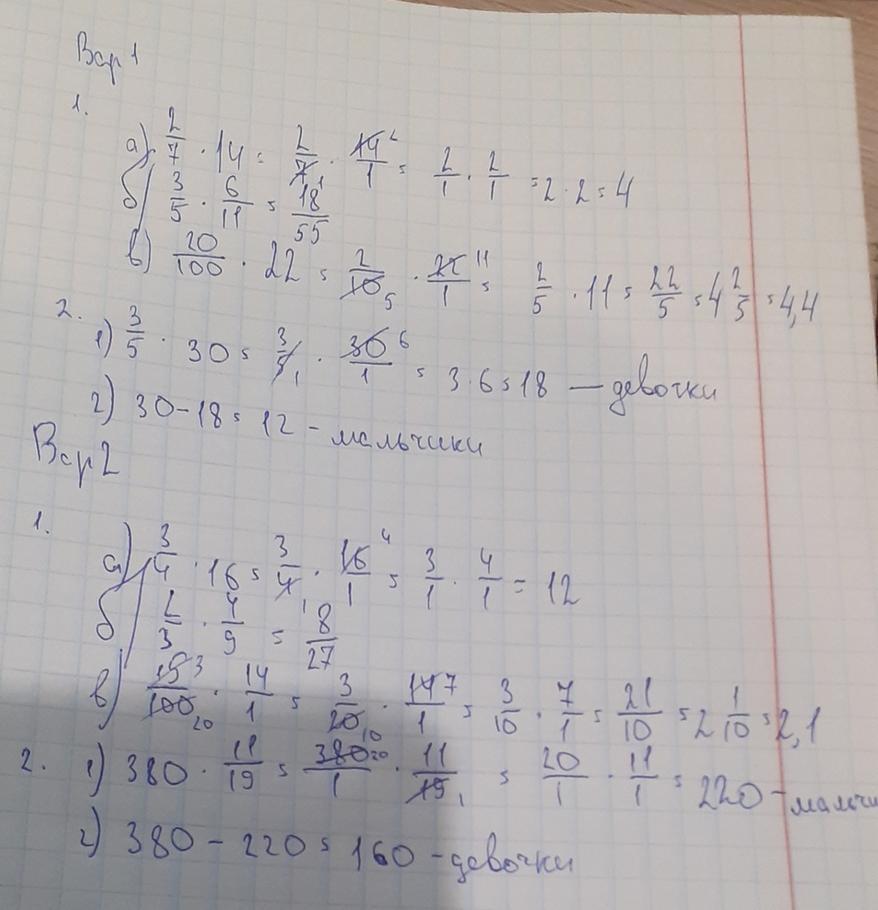 Вар 1
1.
а) 2/7 · 14 = 2/7 1 · 14 2/1 = 2/1 · 2/1 = 2 · 2 = 4
б) 3/5 · 6/11 = 18/55
в) 20/100 · 22 = 2/10 5 · 22 11/1 = 2/5 · 11 = 22/5 = 4 2/5 = 4,4
2.
1) 3/5 · 30 = 3/5 1 · 30 6/1 = 3 · 6 = 18 — девочки
2) 30 - 18 = 12 - мальчики
Вар 2
1.
а) 3/4 · 16 = 3/4 1 · 16 4/1 = 3/1 · 4/1 = 12
б) 2/3 · 4/9 = 8/27
в) 15 3/100 20 · 14/1 = 3/20 10 · 14 7/1 = 3/10 · 7/1 = 21/10 = 2 1/10 = 2,1
2. 1) 380 · 11/19 = 380 20/1 · 11/19 1 = 20/1 · 11/1 = 220 - мальчи
2) 380 - 220 = 160 - девочки